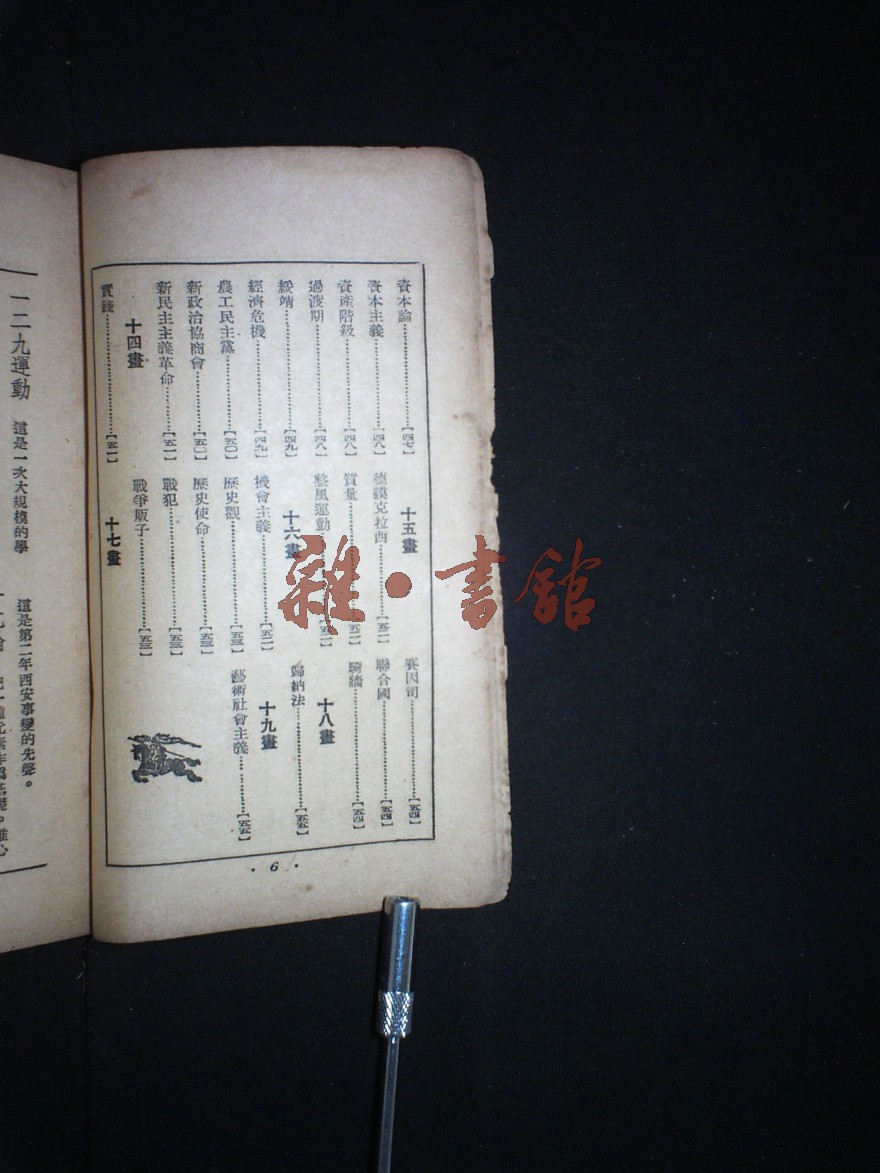 資本論……【四七】
資本主義……【四八】
資產階級……【四八】
過渡期……【四八】
綏靖……【四九】
經濟危機……【四九】
農工民主黨……【五〇】
新政治協商會……【五〇】
新民主主義革命……【五一】
十四畫
實踐……【五一】
十五畫
德謨克拉西……【五二】
質量……【五二】
整風運動……【五二】
十六畫
機會主義……【五二】
歷史觀……【五三】
歷史使命……【五三】
戰犯……【五三】
戰爭販子……【五三】
十七畫
賽因司……【五四】
聯合國……【五四】
騎牆……【五四】
十八畫
歸納法……【五五】
十九畫
藝術社會主義……【五五】
· 6 ·
一二九運動
這是一次大規模的學
這是第二年西安事變的先聲。
雜·書館